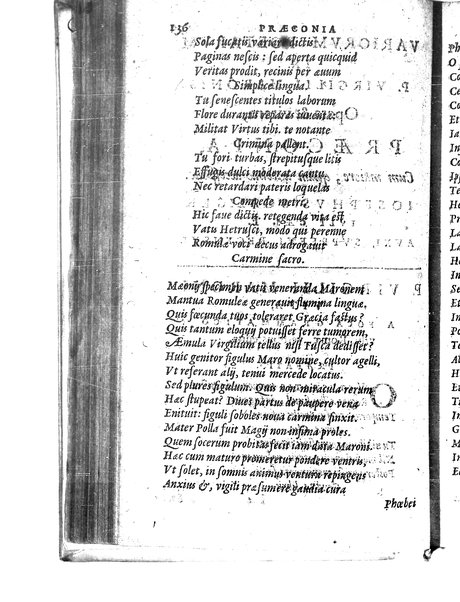 136 PRÆCONIA
Sola fucatis variare dictis
Paginas nescis: sed aperta quicquid
Veritas prodit, recinis per æuum
Simplice lingua.
Tu senescentes titulos laborum
Flore durantis reparas iuuentæ.
Militat Virtus tibi. te notante
Crimina pallent.
Tu fori turbas, strepitusque litis
Effugis dulci moderata cantu,
Nec retardari pateris loquelas
Compede metri.
Hic faue dictis. retegenda vita est
Vatis Hetrusci, modo qui perenne
Romulæ voci decus adrogauit
Carmine sacro.
Mæonij specimen vatis veneranda Maronem
Mantua Romuleæ generauit flumina linguæ.
Quis fœcunda tuos toleraret Græcia fastus?
Quis tantum eloquij potuisset ferre tumorem,
Æmula Virgilium tellus nisi Tusca dedisset?
Huic genitor figulus Maro nomine, cultor agelli,
Vt referant alij, tenui mercede locatus.
Sed plures figulum. Quis non miracula rerum
Hæc stupeat? Diues partus de paupere vena
Enituit: figuli soboles noua carmina finxit.
Mater Polla fuit Magij non infima proles.
Quem socerum probitas fecit iam data Maroni.
Hæc cum maturo premeretur pondere ventris,
Vt solet, in somnis animus ventura repingens
Anxius &, vigili præsumere gaudia cura
Phœbei